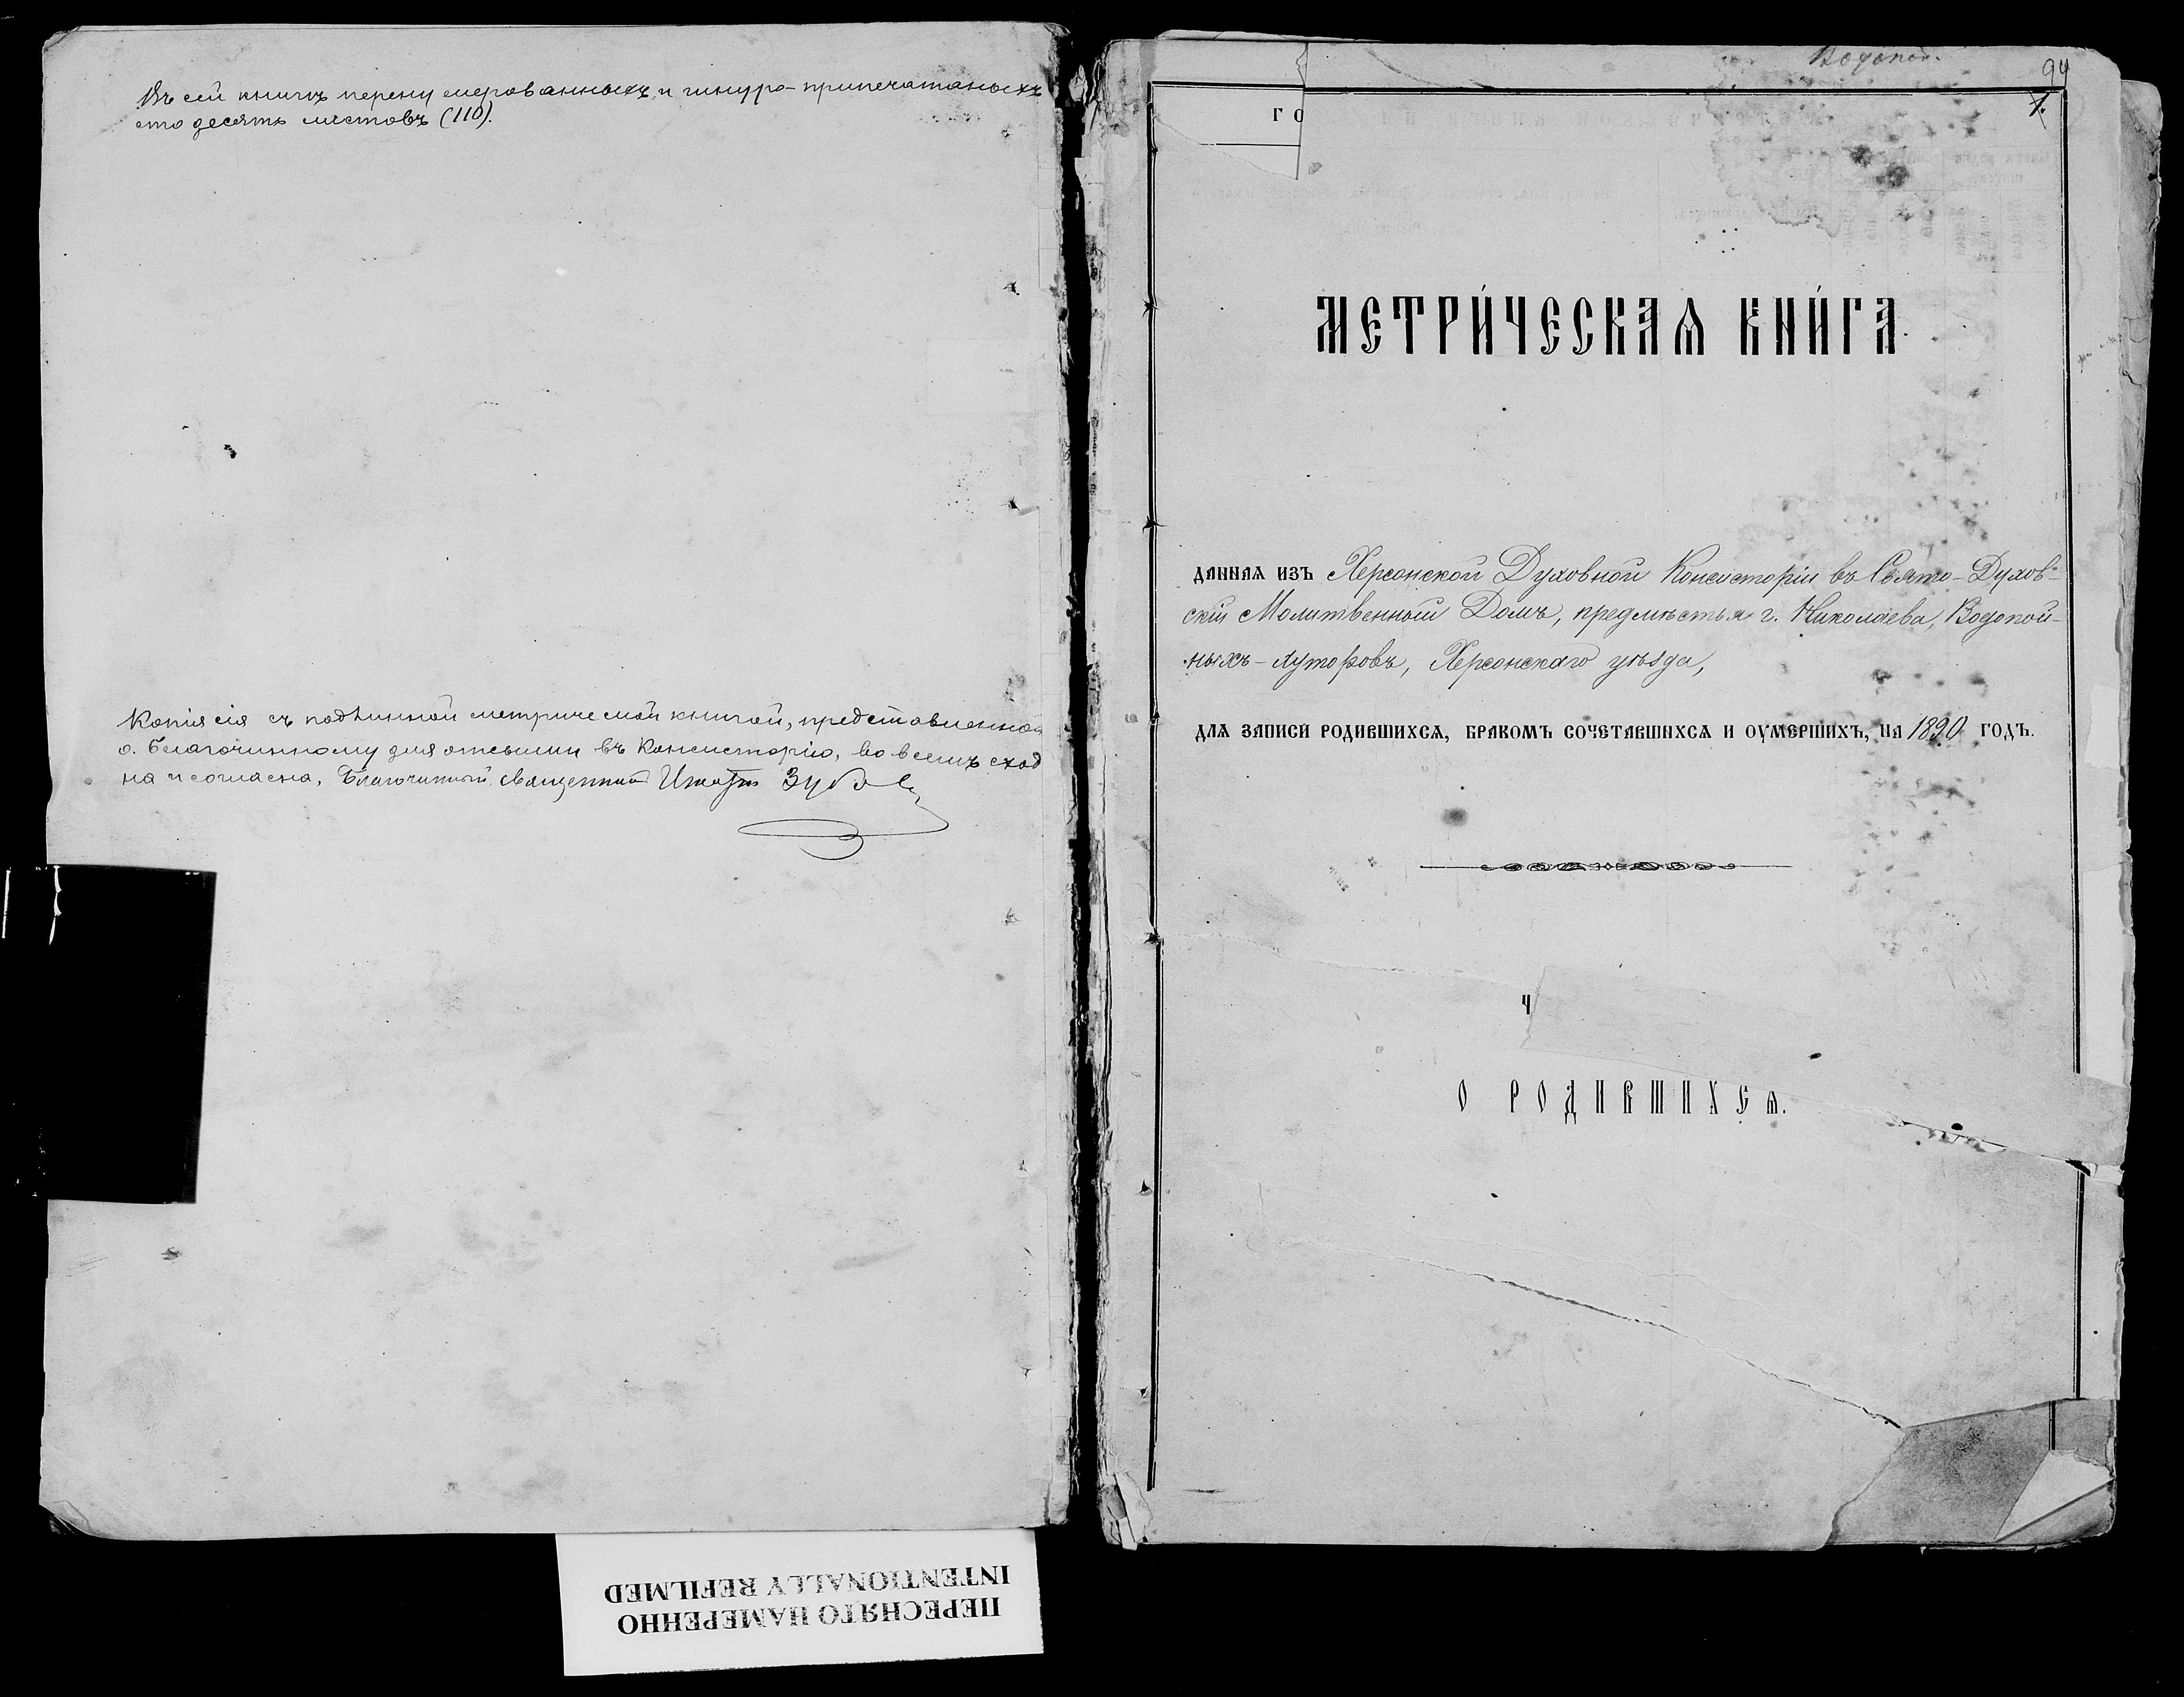 Въ сей книгѣ перенумерованныхъ и шнуро-припечатаныхъ
сто десять листовъ (110).
Копія сія съ подлинной метрической книгой, представленной
о. Благочинному для отсылки въ Консисторію, во всемъ сход
на и согласна. Благочинный Священник Зубов
Водопой.
94
1.
ГО
МЕТРИ́ЧЕСКАѦ КНИ́ГА
ДАННАѦ ИЗЪ Херсонской Духовной Консисторіи въ Свято-Духов-
скій Молитвенный Домъ, предмѣстья г. Николаева, Водопой-
ныхъ-хуторовъ, Херсонскаго уѣзда,
ДЛѦ ЗАПИСИ РОДИВШИХСѦ, БРАКОМЪ СОЧЕТАВШИХСѦ И ОУМЕРШИХЪ, НА 1890 ГОДЪ.
Ч
О РОДИВШИХСѦ.
ПЕРЕСНЯТО НАМЕРЕННО
INTENTIONALLY REFILMED